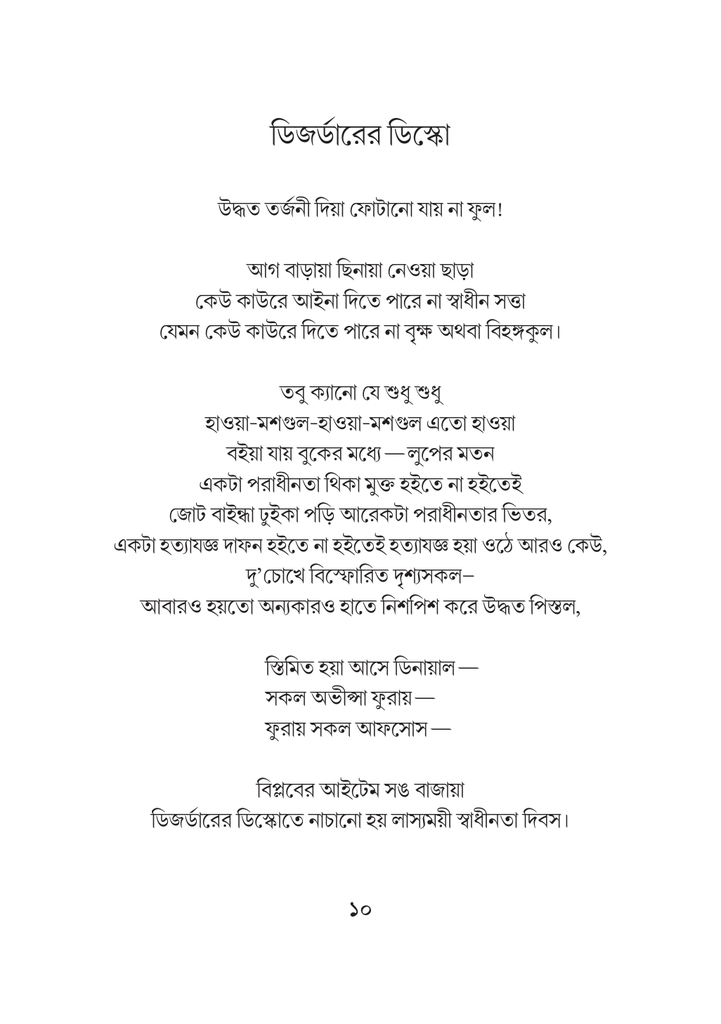 ডিজর্ডারের ডিস্কো
উদ্ধত তর্জনী দিয়া ফোটানো যায় না ফুল!
আগ বাড়ায়া ছিনায়া নেওয়া ছাড়া
কেউ কাউরে আইনা দিতে পারে না স্বাধীন সত্তা
যেমন কেউ কাউরে দিতে পারে না বৃক্ষ অথবা বিহঙ্গকুল।
তবু ক্যানো যে শুধু শুধু
হাওয়া-মশগুল-হাওয়া-মশগুল এতো হাওয়া
বইয়া যায় বুকের মধ্যে—লুপের মতন
একটা পরাধীনতা থিকা মুক্ত হইতে না হইতেই
জোট বাইন্ধা ঢুইকা পড়ি আরেকটা পরাধীনতার ভিতর,
একটা হত্যাযজ্ঞ দাফন হইতে না হইতেই হত্যাযজ্ঞ হয়া ওঠে আরও কেউ,
দু’চোখে বিস্ফোরিত দৃশ্যসকল–
আবারও হয়তো অন্যকারও হাতে নিশপিশ করে উদ্ধত পিস্তল,
স্তিমিত হয়া আসে ডিনায়াল—
সকল অভীপ্সা ফুরায়—
ফুরায় সকল আফসোস—
বিপ্লবের আইটেম সঙ বাজায়া
ডিজর্ডারের ডিস্কোতে নাচানো হয় লাস্যময়ী স্বাধীনতা দিবস।
১০